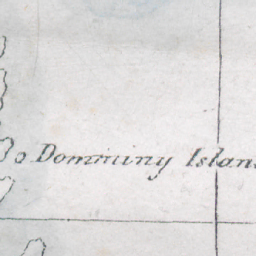 Domminy Islan